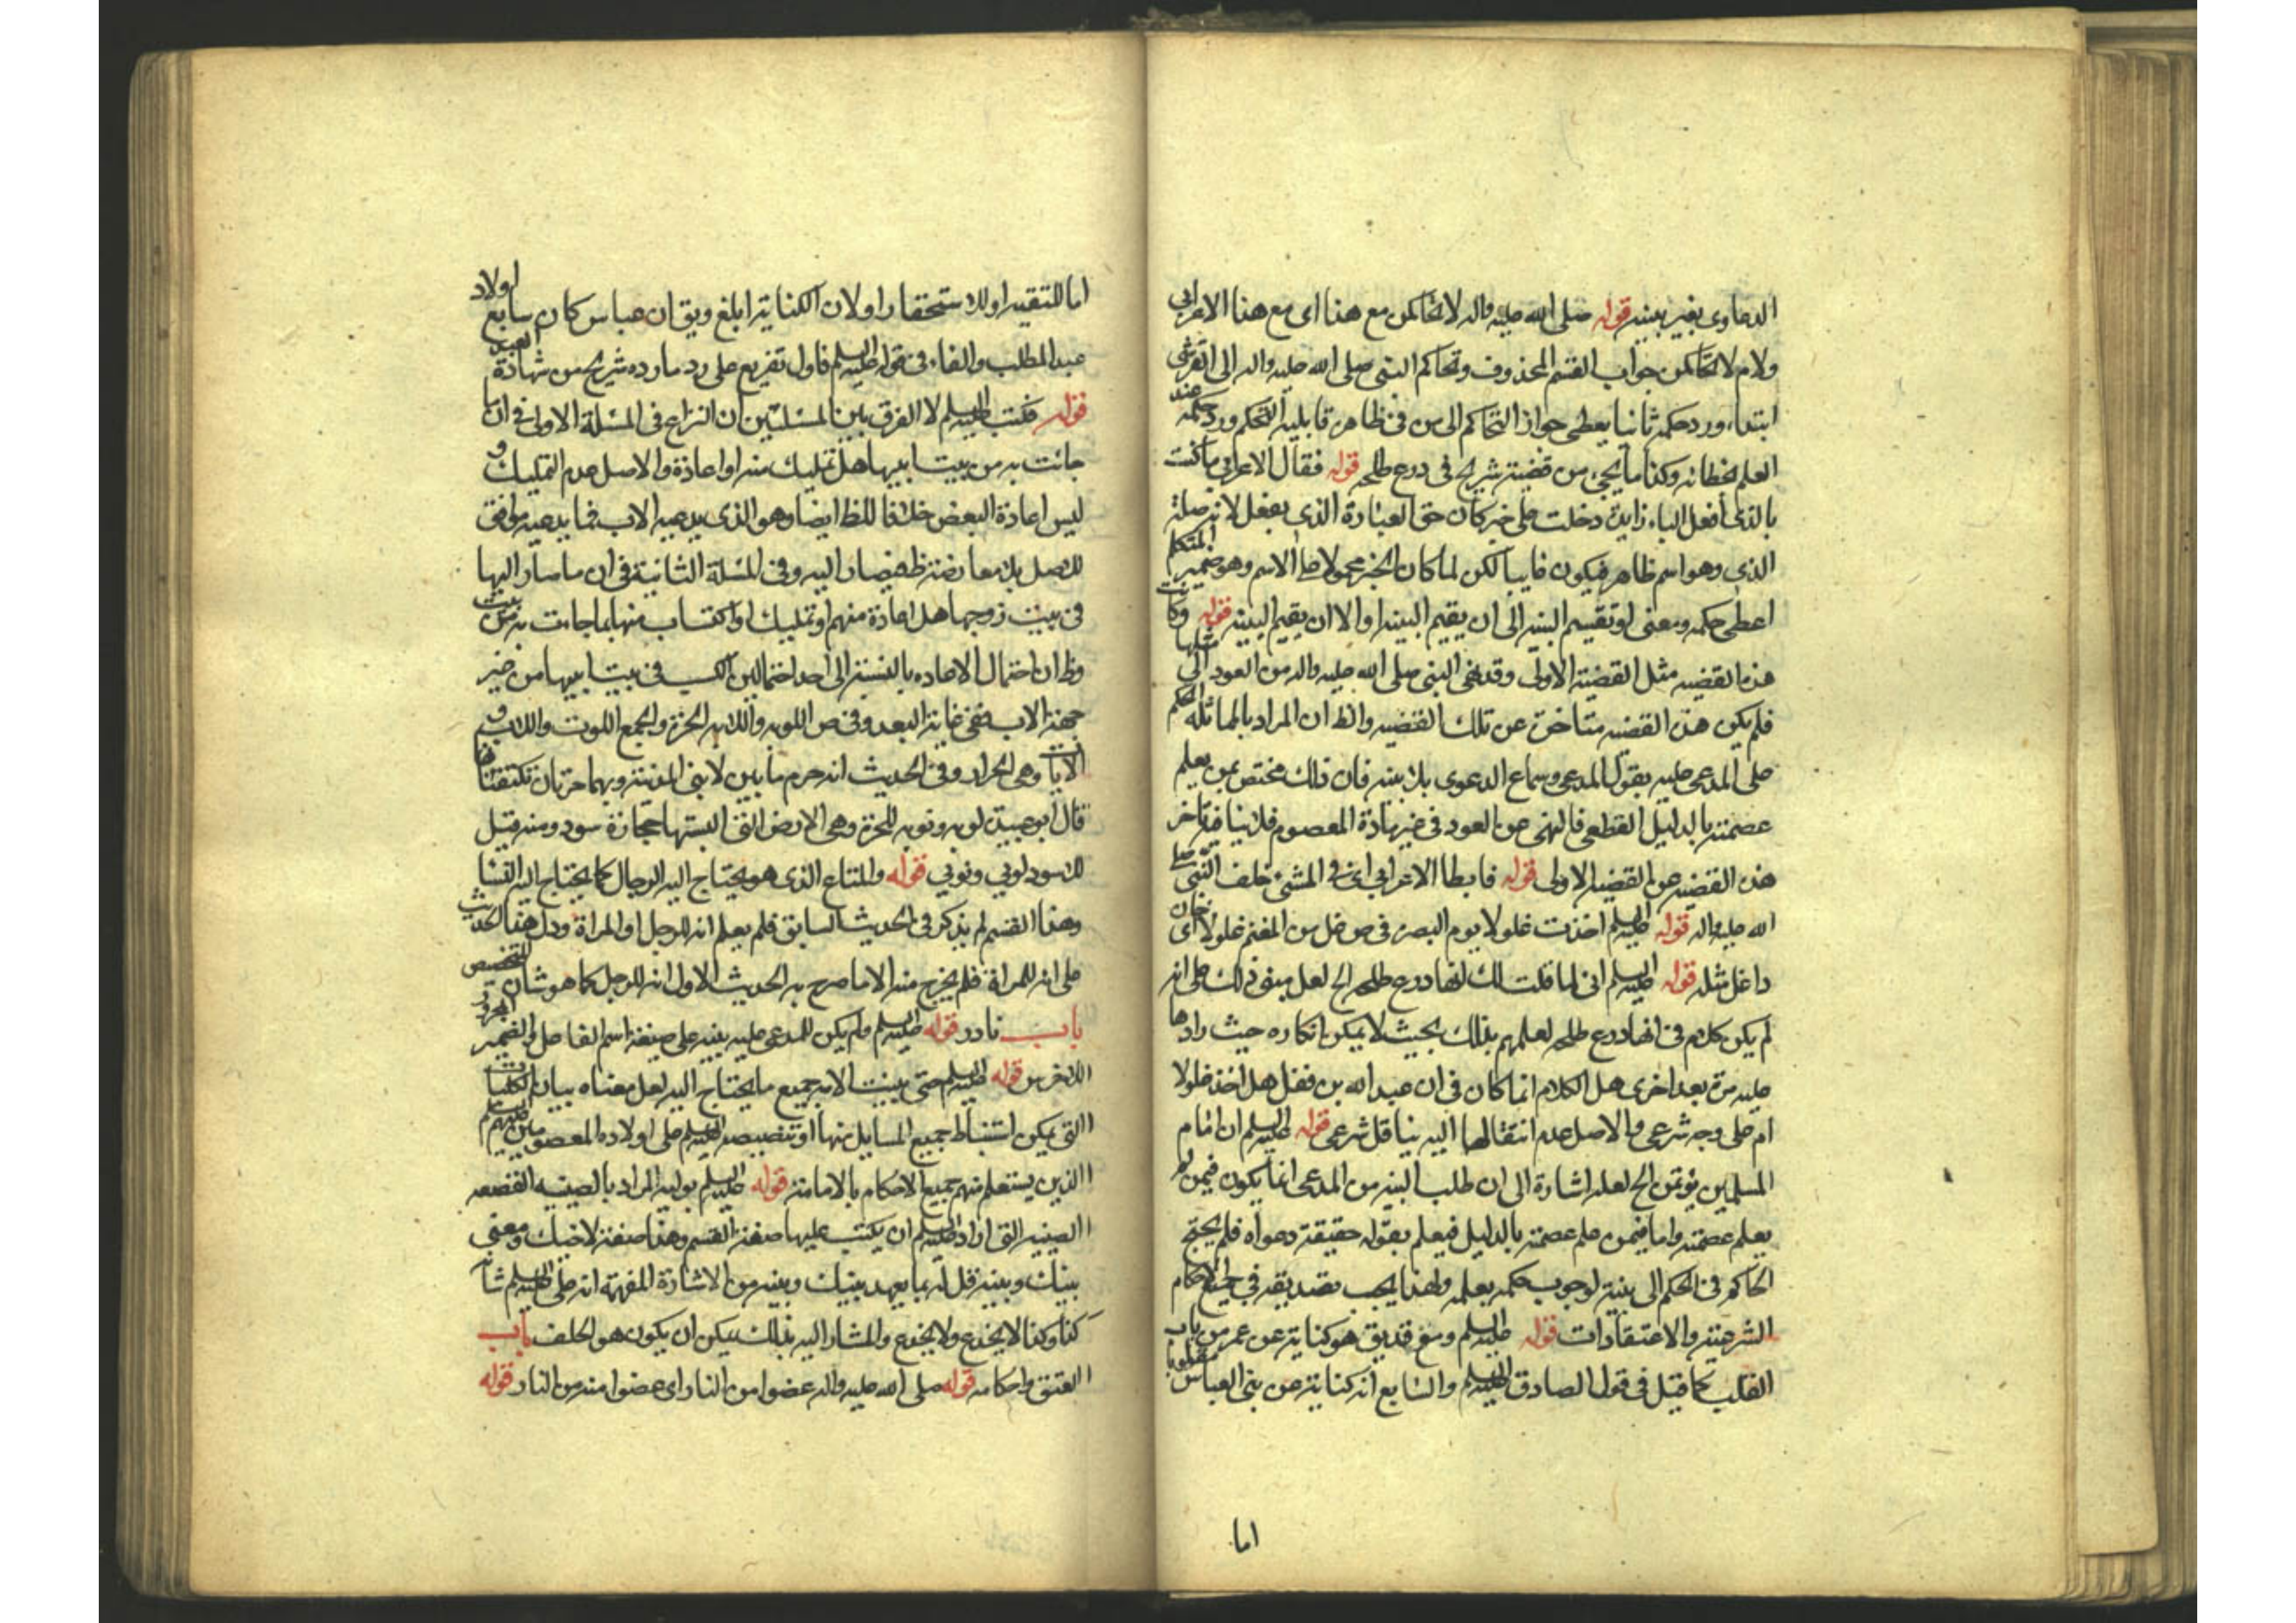 الدعاوى بغير بينه قوله صلى الله عليه واله لاتحاكمن مع هذا اى مع هذا الاعرابى
ولام لاتحاكمن جواب القسم المحذوف وتحاكم النبى صلى الله عليه واله الى القرشى
ابتداء ورد حكمه ثانيا يعطى جواز التحاكم الى من فى ظاهره قابلية التحكم ورد حكمه عند
العلم بخطائه وكذا ما يجئ من قضية شريح فى درع طلحه قوله فقال الاعرابى ما كنت
بالذى أفعل الباء زايدة دخلت على خبر كان حق العبارة الذى يفعل لانه صلة
الذى وهو اسم ظاهر فيكون غايبا لكن لما كان الخبر محمولا على الاسم وهو ضمير المتكلم
اعطى حكمه ومعنى او تقيم البينه الى ان يقيم البينه او الا ان يقيم البينه قوله وكانت
هذه القضيه مثل القضية الاولى وقد نهى النبى صلى الله عليه واله من العود الى مثلها
فلم يكن هذه القضيه متاخرة عن تلك القضيه والظ ان المراد بالمماثله الحكم
على المدعى عليه بقول المدعى وسماع الدعوى بلا بينه فان ذلك مختص بمن يعلم
عصمته بالدليل القطعى فالنهى عن العود فى غير مادة المعصوم فلا ينافى تاخر
هذه القضيه عن القضيه الاولى قوله فابطا الاعرابى اى فى المشى خلف النبى صلى
الله عليه واله قوله عليه السلم اخذت غلولا يوم البصره فى ص غل من المغنم غلولا اى خان
داغل مثله قوله عليه السلم انى لما قلت لك انها درع طلحه الخ لعل مبنى ذلك على انه
لم يكن كلام فى انها درع طلحه لعلمهم بذلك بحيث لا يمكن انكاره حيث راوها
عليه مرة بعد اخرى هل الكلام انما كان فى ان عبد الله بن قفل هل اخذه غلولا
ام على وجه شرعى والاصل عدم انتقالها اليه بناقل شرعى قوله عليه السلم ان امام
المسلمين يؤتمن الخ لعله اشارة الى ان طلب البينه من المدعى انما يكون فيمن لم
يعلم عصمته واما فيمن علم عصمته بالدليل فيعلم بقوله حقيقة دعواه فلم يحتج
الحاكم فى الحكم الى بينة لوجوب حكمه بعلمه ولهذا يجب تصديقه فى جميع الاحكام
الشرعية والاعتقادات قوله عليه السلم ومع قد يق هو كناية عن عمر من باب
القلب كما قيل فى قول الصادق عليه السلم والسابع انه كناية عن بنى العباس مقلوبا
اما
اما للتقيه او للاستحقار او لان الكناية ابلغ ويق ان عباس كان سابع اولاد
عبد المطلب والفاء فى قوله عليه السلم فاول تفريع على رد ما رده شريح من شهادة العبد
قوله فكتب عليه السلم لا الفرق بين المسئلتين ان النزاع فى المسئلة الاولى فى ان ما
جائت به من بيت ابيها هل تمليك منه او اعادة والاصل عدم التمليك و
ليس اعادة البعض خلافا للظ ايضا وهو الذى يدعيه الاب فما يدعيه موافق
للاصل بلا معارضة ظ فيصار اليه وفى المسئلة الثانية فى ان ما سار اليها
فى بيت زوجها هل اعادة منهم او تمليك او اكتساب منها بما جاءت به من بيت
وظ ان احتمال الاعاده بالنسبة الى احد احتمالين الكسب فى بيت ابيها من غير
جهة الاب ففى غاية البعد وفى ص اللوب واللابه الحرة والجمع اللوت واللاب و
اللابات وهى الحرار وفى الحديث انه حرم ما بين لابتى المدينة وهما حرتان تكتنفانها
قال ابو عبيدة لوبه ونوبه للحرة وهى الارض التى البستها حجارة سود ومنه قيل
للاسود لوبى ونوبى قوله والمتاع الذى هو يحتاج اليه الرجال كما يحتاج اليه النسا
وهذا القسم لم يذكر فى الحديث السابق فلم يعلم انه للرجل او المراة ودل هذا الحديث
على انه للمراة فلم يخرج منه الا ما صرح به الحديث الاول انه للرجل كما هو شان التخصيص
باب نادر قوله عليه السلم ولم يكن للمدعى عليه بينه على صيغة اسم الفاعل والضمير المجرور
للاخرس قوله عليه السلم حتى بينت للامة جميع ما يحتاج اليه لعل معناه بيان الكليات
التى يمكن استنباط جميع المسايل منها او تنصيصه عليه السلم على اولاده المعصومين عليهم السلم
الذين يستعلم منهم جميع الاحكام بالامامة قوله عليه السلم بوليه المراد بالصينيه القصعه
الصينيه التى اراد عليه السلم ان يكتب عليها صفة القسم وهذا صفة لاخيك ومعنى
بينك وبينه قل له بما يعهد بينك وبينه من الاشارة المفهمة انه على عليه السلم شانه
كذا وكذا لا يخدع ولا يخدع والمشار اليه بذلك يمكن ان يكون هو الحلف باب
العتق واحكامه قوله صلى الله عليه واله عضوا من النار اى عضوا منه من النار قوله